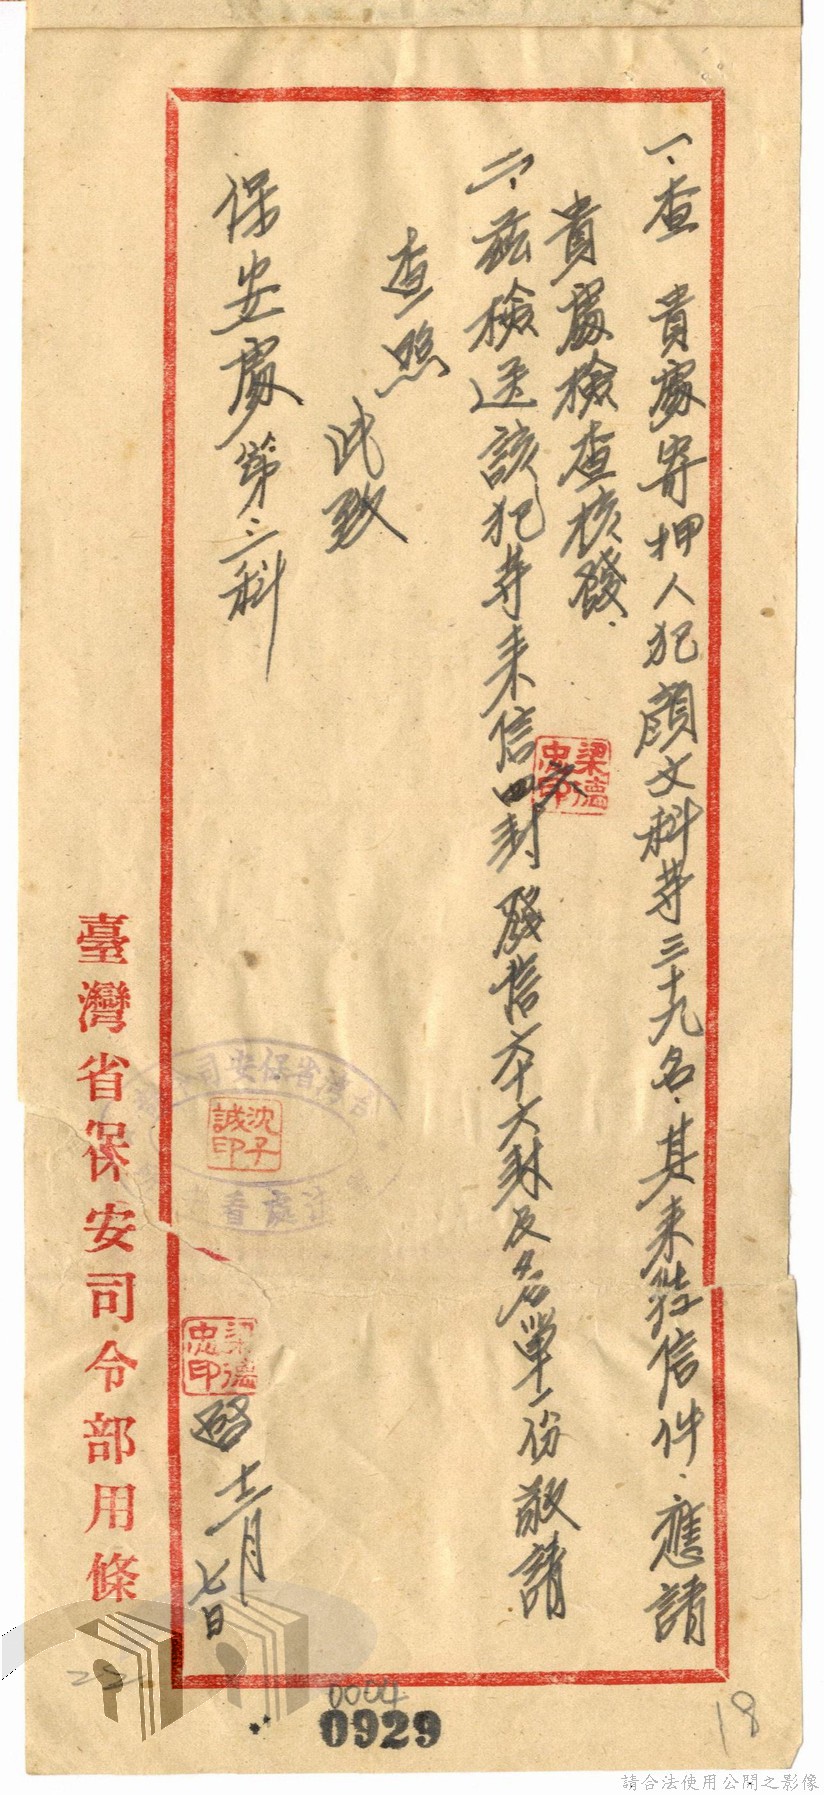 一、查 貴處寄押人犯顏文科等三十九名．其來往信件．應請
貴處檢查核發．
二、茲檢送該犯等來信四封 發信六十六封及名單一份敬請
查照
此致
保安處第三科
梁德忠印
沈子誠印
梁德忠印
啓 十二月七日
臺灣省保安司令部用條
0004
0929
18
22
請合法使用公開之影像